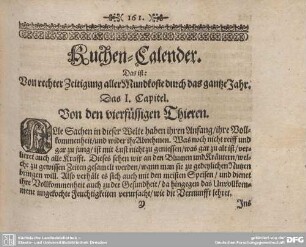 161.
Kuchen-Calender.
Das ist:
Von rechter Zeitigung aller Mundkoste durch das gantze Jahr.
Das I. Capitel.
Von den vierfüssigen Thieren.
Alle Sachen in dieser Welt haben ihren Anfang / ihre Voll-
kommenheit / und wider ihr Abnehmen. Was noch nicht reiff und
gar zu jung / ist mit Lust nicht zu geniessen / was gar zu alt ist / ver-
lieret auch alle Krafft. Dieses sehen wir an den Blumen und Kräutern / wel-
che zu gewissen Zeiten gesamlet werden / wann man sie zu gedeylichen Nutzen
bringen wil. Also verhält es sich auch mit den meisten Speisen / und dienet
ihre Vollkommenheit auch zu der Gesundheit / da hingegen das Unvollkom-
mene ungekochte Feuchtigkeiten verursacht / wie die Vernunfft lehret.
Ins